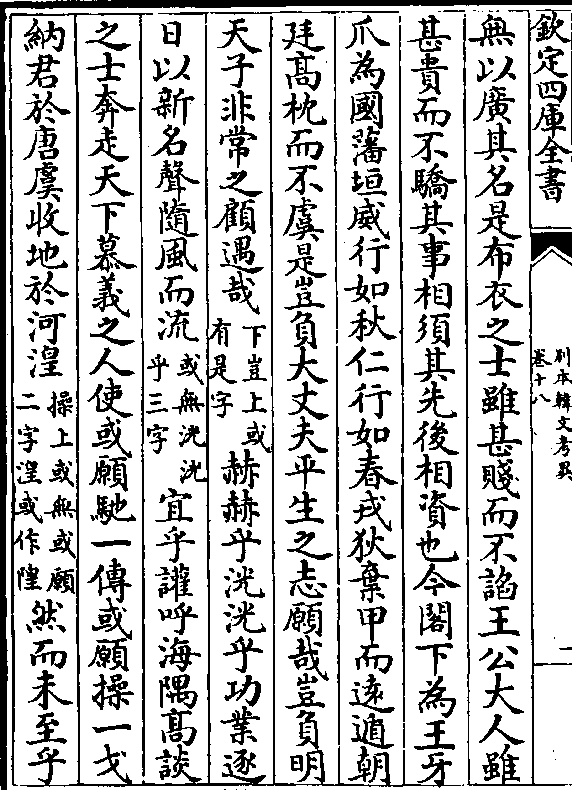 欽定四庫全書
別本韓文考異
卷十八
一
無以廣其名是布衣之士雖甚賤而不諂王公大人雖
甚貴而不驕其事相須其先後相資也今閣下為王牙
爪為國藩垣威行如秋仁行如春戎狄棄甲而遠遁朝
廷高枕而不虞是豈負大丈夫平生之志願哉豈負明
天子非常之顧遇哉下豈上或有是字赫赫乎洸洸乎功業逐
日以新名聲隨風而流或無洸洸乎三字宜乎讙呼海隅高談
之士奔走天下慕義之人使或願馳一傳或願操一戈
納君於唐虞收地於河湟操上或無或願二字湟或作隍然而未至乎